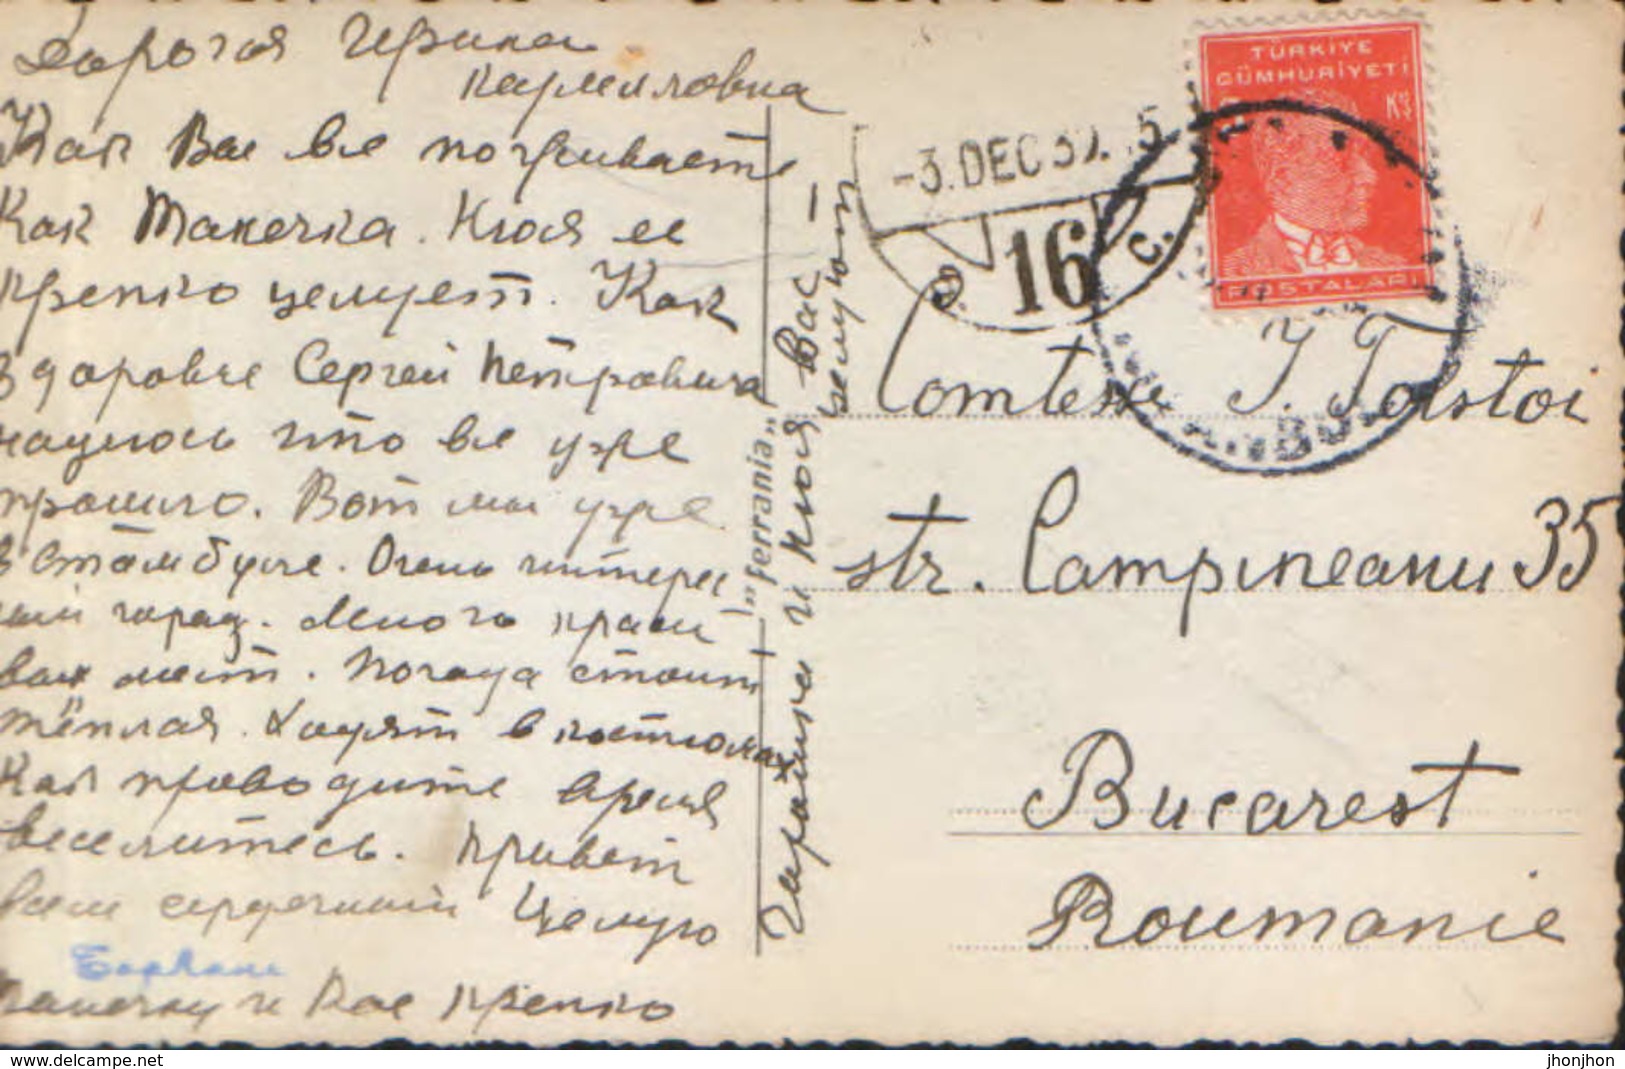 Дорогая Ирина
Камилловна
Как Вы все поживаете
Как Танечка. Кися ее
крепко целует. Как
здоровье Сергей Петровича
надеюсь что все уже
прошло. Вот мы уже
в Стамбуле. Очень интерес
ный город. Много краси
вых мест. Погода стоит
тёплая. Ходят в костюмах
Как проводите время
веселитесь. Привет
всем сердечный Целую
Танечку и Вас крепко
и Кися Вас —
целуют
"ferrania"
TÜRKİYE
CÜMHURİYETİ
KŞ
POSTALARI
-3.DEC 39.
16
Comtesse I. Tolstoi
str. Campineanu 35
Bucarest
Roumanie
www.delcampe.net
jhonjhon